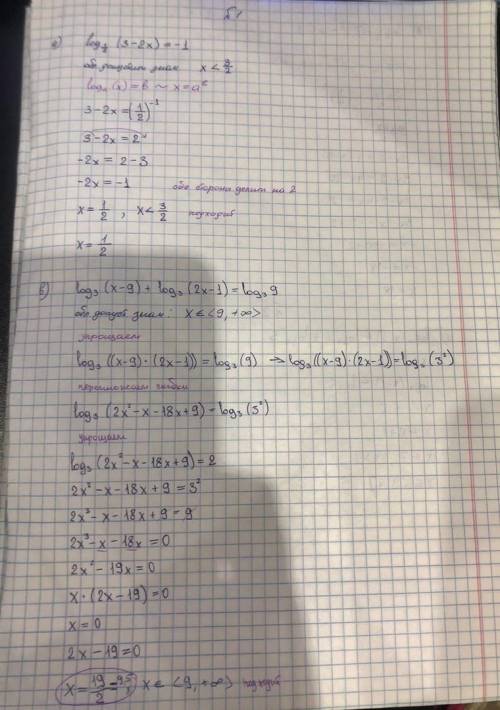 а) log½ (3-2x) = -1
обл. допустим знач x < 3/2
logₐ(x) = b ~ x = aᵇ
3-2x = (1/2)⁻¹
3-2x = 2
-2x = 2-3
-2x = -1 обе сторона делит на 2
x = 1/2, x < 3/2 подходит
x = 1/2
в) log₃ (x-9) + log₃ (2x-1) = log₃ 9
обл. допуст знач: x ∈ <9, +∞>
упрощаем
log₃ ((x-9)·(2x-1)) = log₃ (9) → log₃ ((x-9)·(2x-1)) = log₃ (3²)
log₃ (2x²-x-18x+9) = log₃ (3²)
упрощаем
log₃ (2x²-x-18x+9) = 2
2x²-x-18x+9 = 3²
2x²-x-18x+9 = 9
2x²-x-18x = 0
2x²-19x = 0
x·(2x-19) = 0
x = 0
2x-19 = 0
x = 19/2 = 9,5 x ∈ <9, +∞> подходит